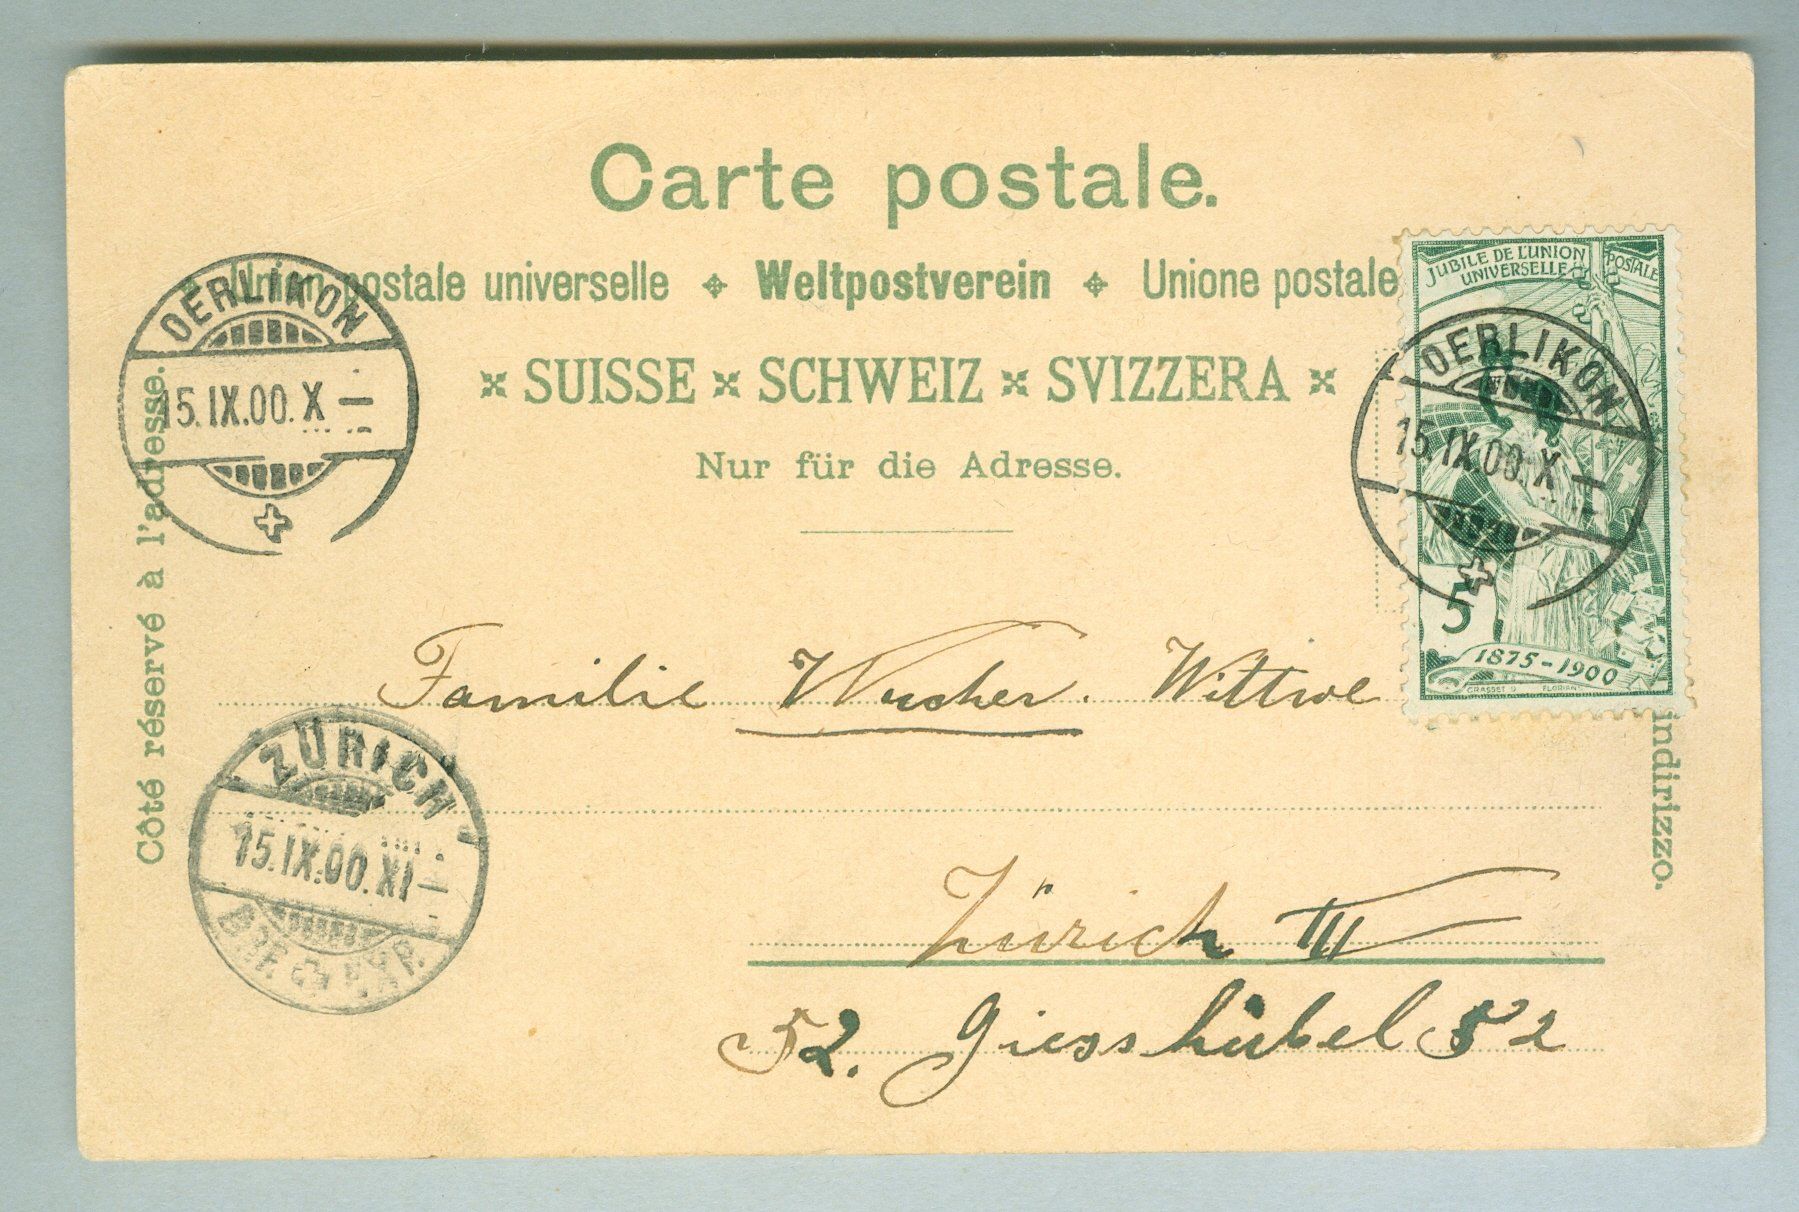 Carte postale.
Union postale universelle Weltpostverein Unione postale
SUISSE SCHWEIZ SVIZZERA
Nur für die Adresse.
Côté réservé à l'adresse.
indirizzo.
OERLIKON
15.IX.00.X
JUBILE DE L'UNION POSTALE
UNIVERSELLE
5
1875-1900
GRASSET FLORIAN
OERLIKON
15.IX.00.X
Familie Wucher. Wittwe
ZÜRICH
15.IX.00.XI
BRF. EXP.
Zürich III
52. Giesshübel 52